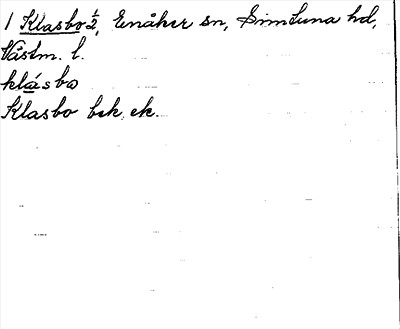 1 Klasbo ½, Enåker sn, Simtuna hd,
Västm. l.
klásbo
Klasbo bek, ek.